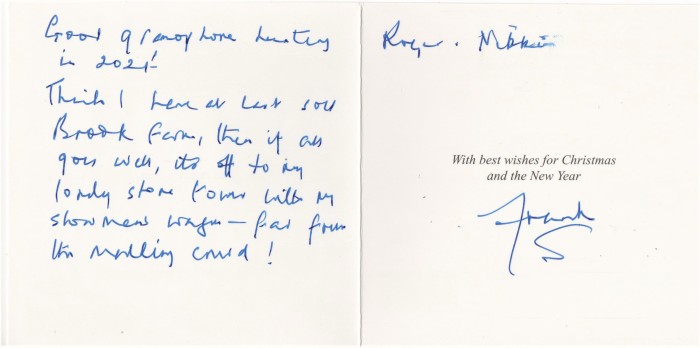 Good gramophone hunting
in 2021!
Think I have at last sold
Brook Farm, then if all
goes well, its off to my
lonely stone tower with my
showmens wagon — far from
the madding crowd!
Roger.
With best wishes for Christmas
and the New Year
Frank
S